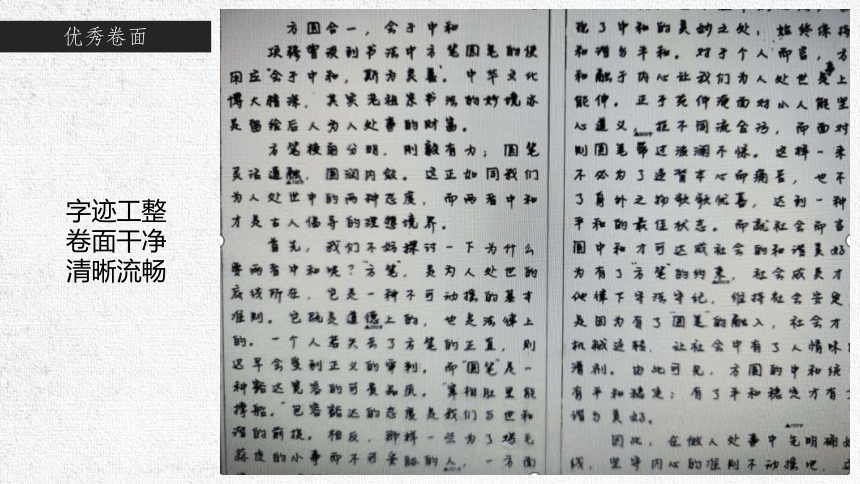 优秀卷面
字迹工整
卷面干净
清晰流畅
方圆合一,会于中和
项穆曾谈到书法中方笔圆笔的使
用应会于中和,斯为美善。中华文化
博大精深,其实先祖书法的妙境亦
是留给后人为人处事的财富。
方笔棱角分明,刚毅有为;圆笔
灵活通融,圆润内敛。这正如同我们
为人处世中的两种态度,而两者中和
才是古人倡导的理想境界。
首先,我们不妨探讨一下为什么
要两者中和呢?“方笔”,是为人处世的
底线所在,它是一种不可动摇的基本
准则。它既是道德上的,也是法律上
的。一个人若失去了方笔的正直,则
迟早会受到正义的审判。而“圆笔”是一
种豁达宽容的可贵品质。“宰相肚里能
撑船。”包容豁达的态度是我们与世和
谐的前提。相反,那样一些为了鸡毛
蒜皮的小事而不可妥协的人,一方面
了中和的灵妙之处,始终保持
和谐与平和。对于个人而言,方
和融于内心让我们为人处世上
能伸。正于英伸面对小人能坚
心道义,拒不同流合污,而面对
则圆笔带过波澜不惊。这样一来
不必为了违背本心而痛苦,也不
了身外之物欷欷忧喜,达到一种
平和的最佳状态。而就社会而言
圆中和才可达成社会的和谐美好
为有了“方笔”的约束,社会成员才
他律下守法守纪,维持社会安定
是因为有了“圆笔”的融入,社会才
机械运转,让社会中有了人情味
清刚。由此可见,方圆的中和续
有平和稳定;有了平和稳定才有了
谐与美好。
因此,在做人处事中先明确
线,坚守内心的准则不动摇吧,